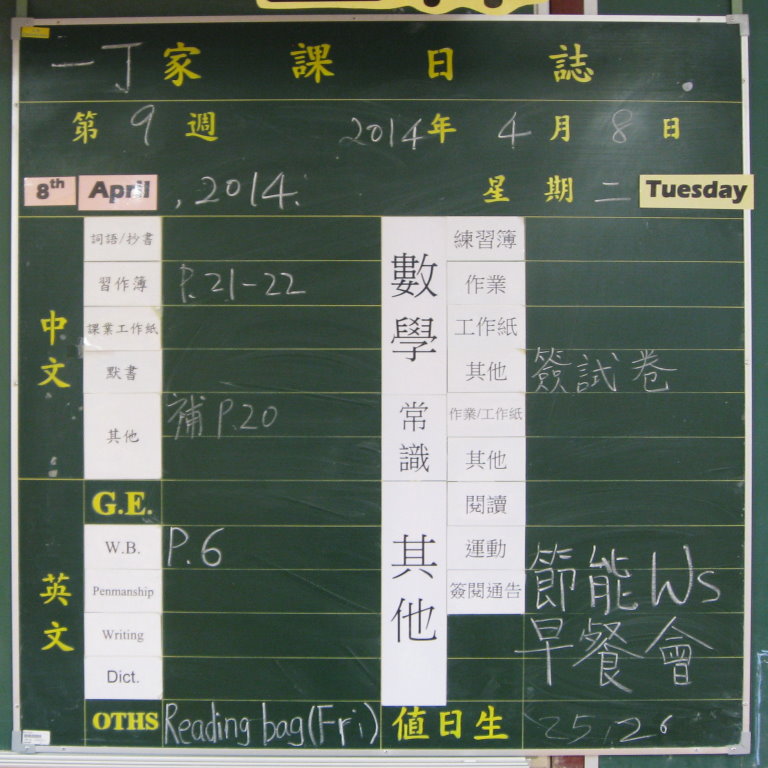 一丁家課日誌
第9週 2014年4月8日
8th April, 2014. 星期二 Tuesday
中文
詞語/抄書
習作簿 P.21-22
課業工作紙
默書
其他 補P.20
英文
G.E.
W.B. P.6
Penmanship
Writing
Dict.
OTHS Reading bag(Fri)
數學
練習簿
作業
工作紙
其他 簽試卷
常識
作業/工作紙
其他
其他
閱讀
運動
簽閱通告 節能Ws
早餐會
值日生 25,26